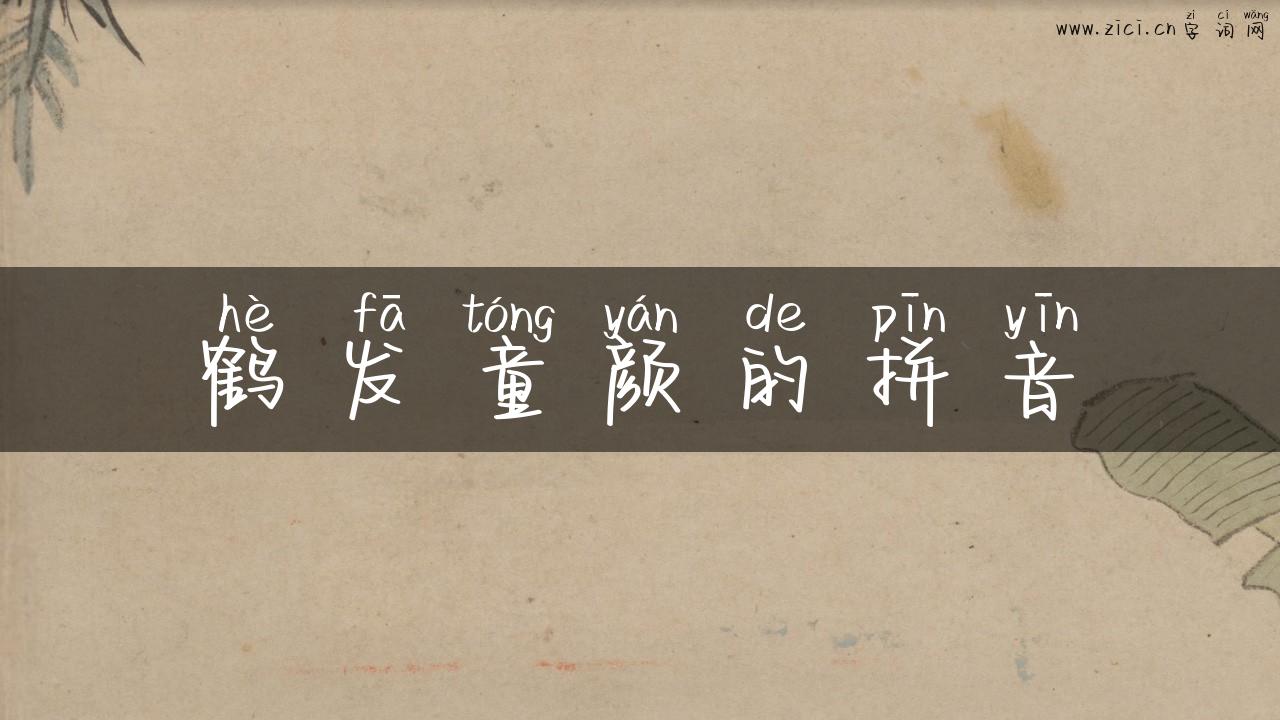 zì cí wǎng
www.zici.cn 字 词 网
hè fā tóng yán de pīn yīn
鹤 发 童 颜 的 拼 音